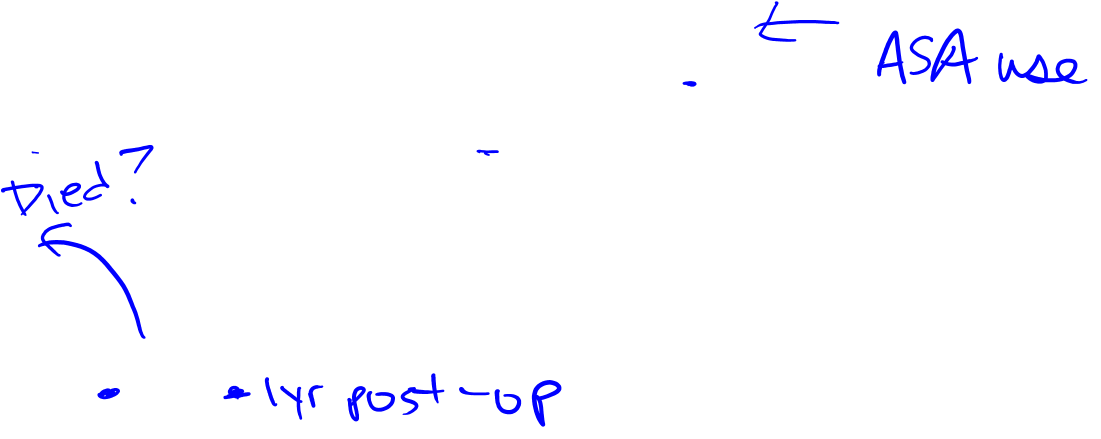 ASA use
Died?
1yr post-op